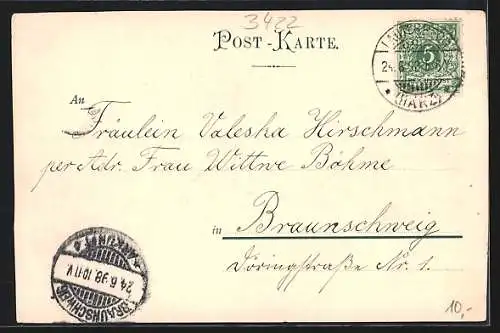 3422
POST-KARTE.
5
24.6.98
(HARZ)
An
Fräulein Valeska Hirschmann
per Adr. Frau Wittwe Böhme
in Braunschweig
Döringstraße Nr. 1.
BRAUNSCHWEIG
24.6.98.10-11V.
10,-